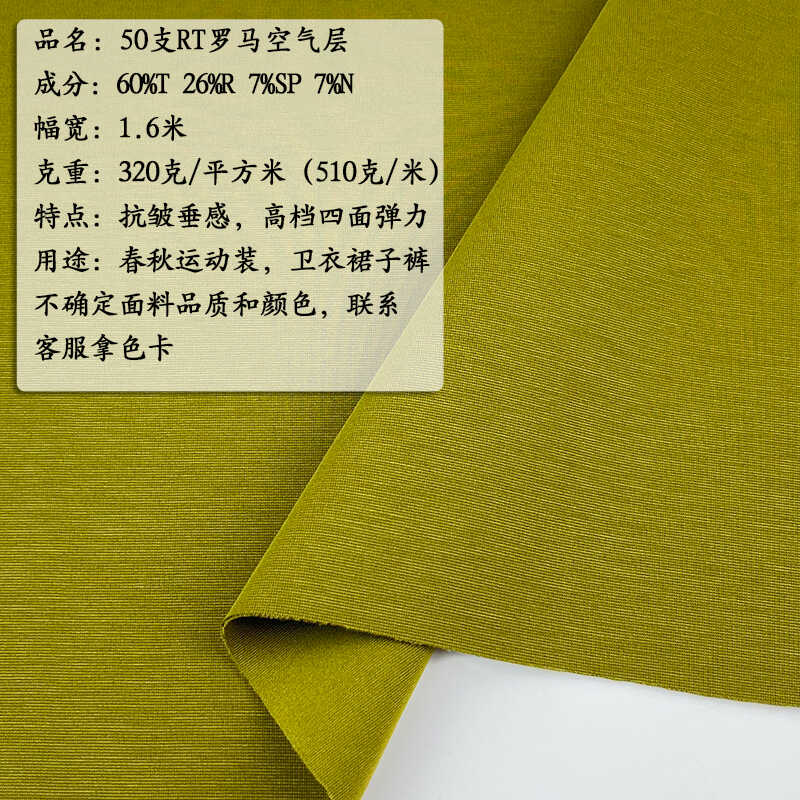 品名：50支RT罗马空气层
成分：60%T 26%R 7%SP 7%N
幅宽：1.6米
克重：320克/平方米（510克/米）
特点：抗皱垂感，高档四面弹力
用途：春秋运动装，卫衣裙子裤
不确定面料品质和颜色，联系
客服拿色卡